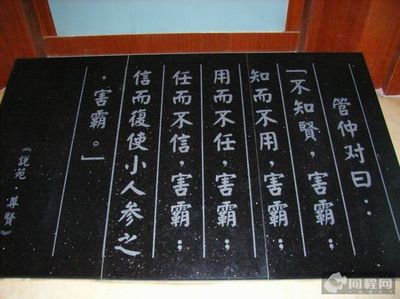 管仲对曰：
「不知賢，害霸；
知而不用，害霸；
用而不任，害霸；
任而不信，害霸；
信而復使小人参之
，害霸。」
《説苑·尊賢》
同程网